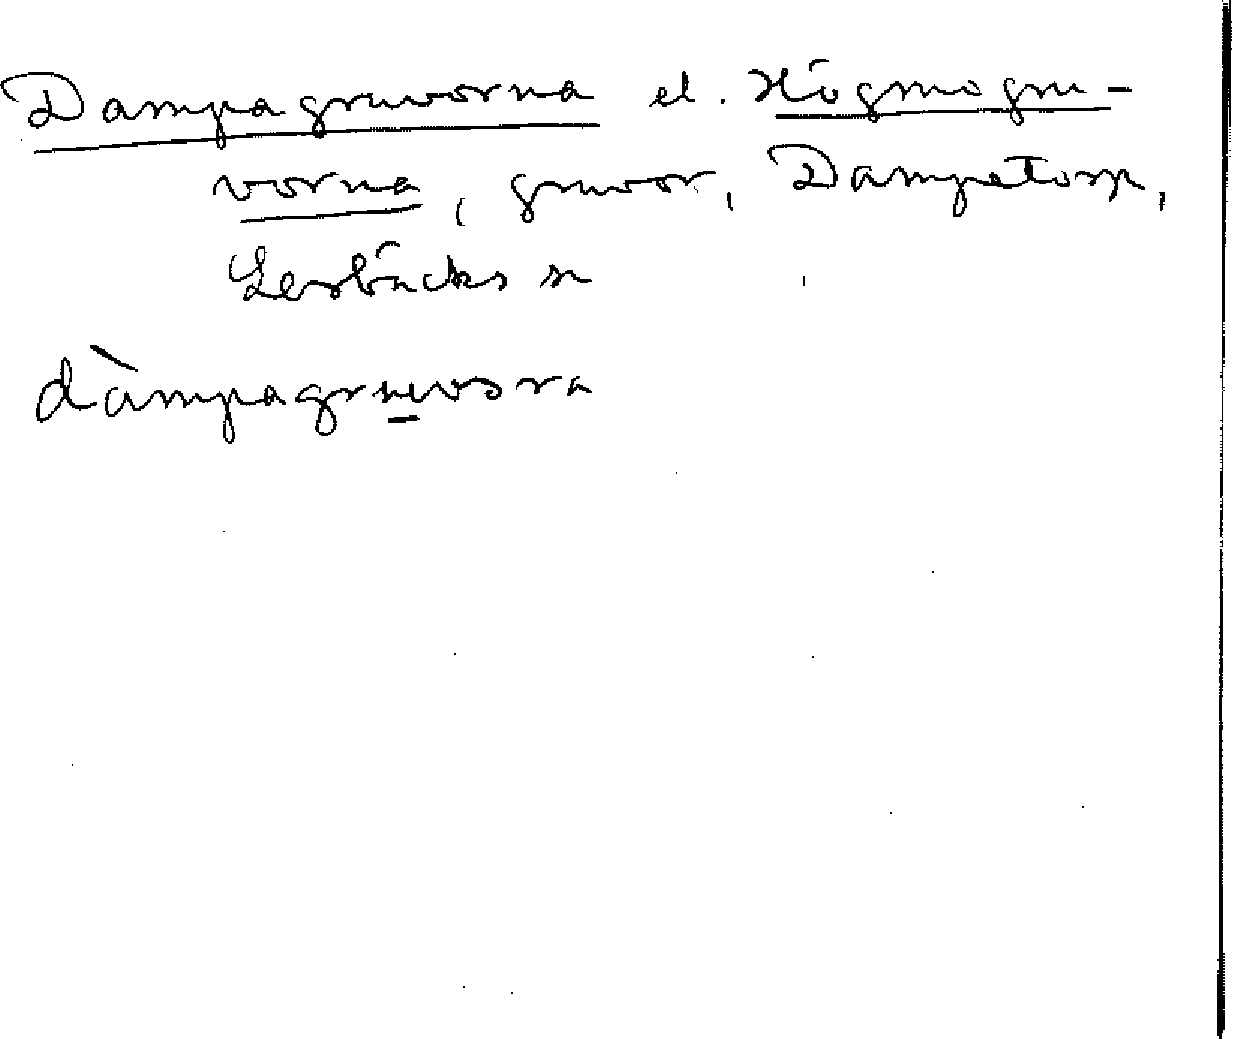 Dampagruvorna el. Högmogru-
vorna, gruvor, Dampetorp,
Lerbäcks sn
dàmpagruvosra